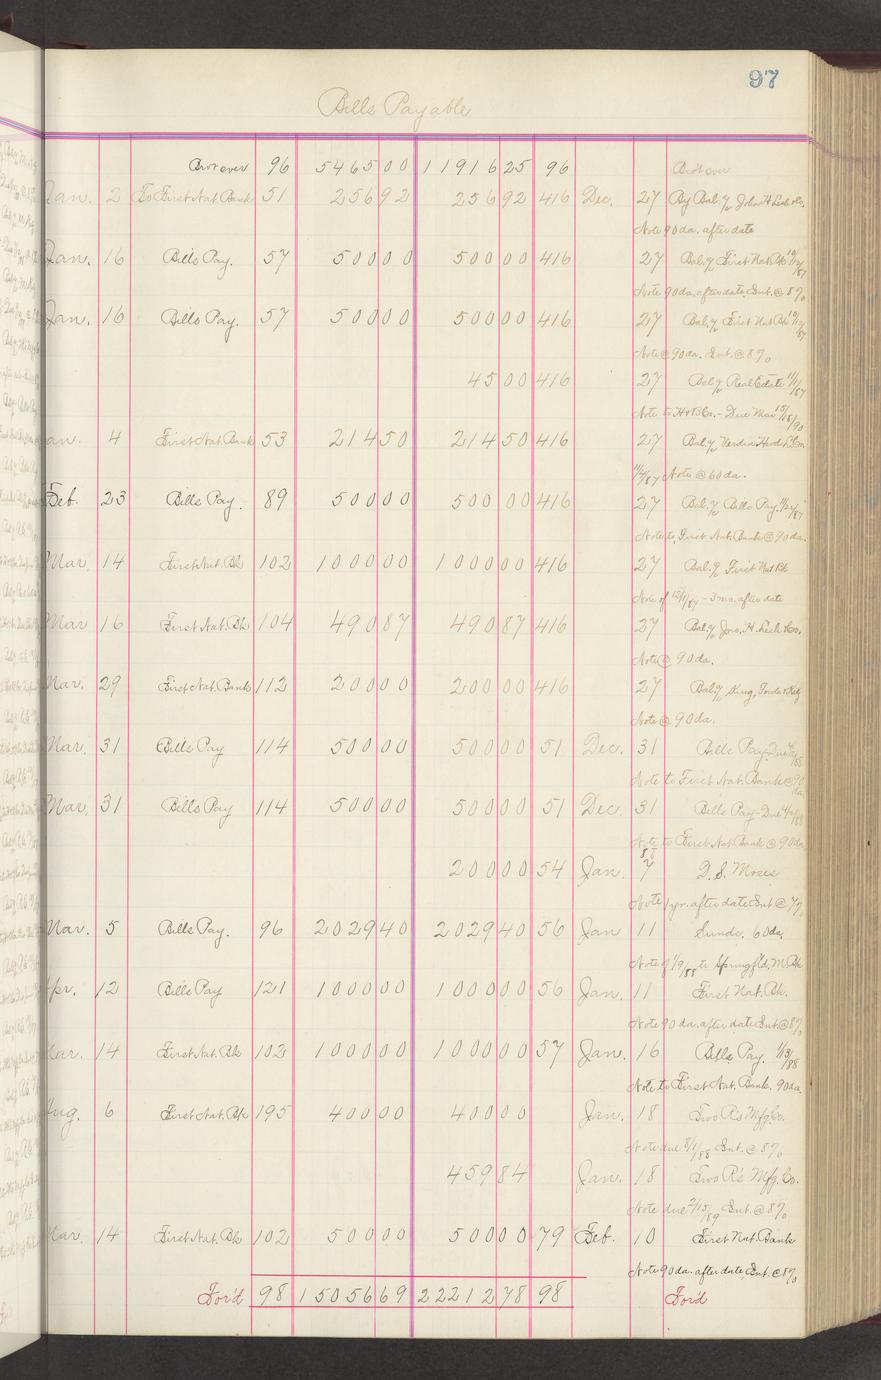 97
Bills Payable
Bro't over 96 5465 00 11916 25 96 Bro't over
Jan. 2 To First Nat. Bank 51 256 92 256 92 416 Dec. 27 By Bal. of John H. Leek Co.
Note 90 da. after date
Jan. 16 Bills Pay. 57 500 00 500 00 416 27 Bal. of First Nat Bk
Note 90 da. after date, Int. @ 8%
Jan. 16 Bills Pay. 57 500 00 500 00 416 27 Bal. of First Nat Bk
Note @ 90 da. Int. @ 8%
45 00 416 27 Bal of Real Estate 11/1/87
Note to Co. - Due Mar 15/90
an. 4 First Nat. Bank 53 214 50 214 50 416 27 Bal. of
Note @ 60 da.
Feb. 23 Bills Pay. 89 500 00 500 00 416 27 Bal. of Bills Pay.
Note to First Nat. Bank @ 90 da.
Mar. 14 First Nat. Bk 102 1000 00 1000 00 416 27 Bal. of First Nat Bk
Note of 12/1/87 - 3 mo. after date
Mar 16 First Nat. Bk 104 490 87 490 87 416 27 Bal. of Jno. H. Leek Co.
Note @ 90 da.
Mar. 29 First Nat. Bank 112 200 00 200 00 416 27 Bal. of King,
Note @ 90 da.
Mar. 31 Bills Pay 114 500 00 500 00 51 Dec. 31 Bills Pay-Due
Note to First Nat. Bank @ 90 da.
Mar. 31 Bills Pay 114 500 00 500 00 51 Dec. 31 Bills Pay-Due
Note to First Nat Bank @ 90 da
88
200 00 54 Jan. 7 D. S. Moses
Note 1 yr. after date Int @ 7%
Mar. 5 Bills Pay. 96 2029 40 2029 40 56 Jan 11 Sunds. 60 da.
Note of 1/9/88 to Springfld. M. Bk
pr. 12 Bills Pay 121 1000 00 1000 00 56 Jan. 11 First Nat. Bk.
Note 90 da. after date Int. @ 8%
ar. 14 First Nat. Bk 102 1000 00 1000 00 57 Jan. 16 Bills Pay. 1/13/88
Note to First Nat. Bank. 90 da.
ug. 6 First Nat. Bk 195 400 00 400 00 Jan. 18 Two R's Mfg. Co.
Note due 8/1/88 Int. @ 8%
459 84 Jan. 18 Two R's Mfg. Co.
Note due 2/15/89 Int. @ 8%
ar. 14 First Nat. Bk 102 500 00 500 00 79 Feb. 10 First Nat. Bank
Note 90 da. after date Int. @ 8%
For'd 98 15056 69 22212 78 98 For'd